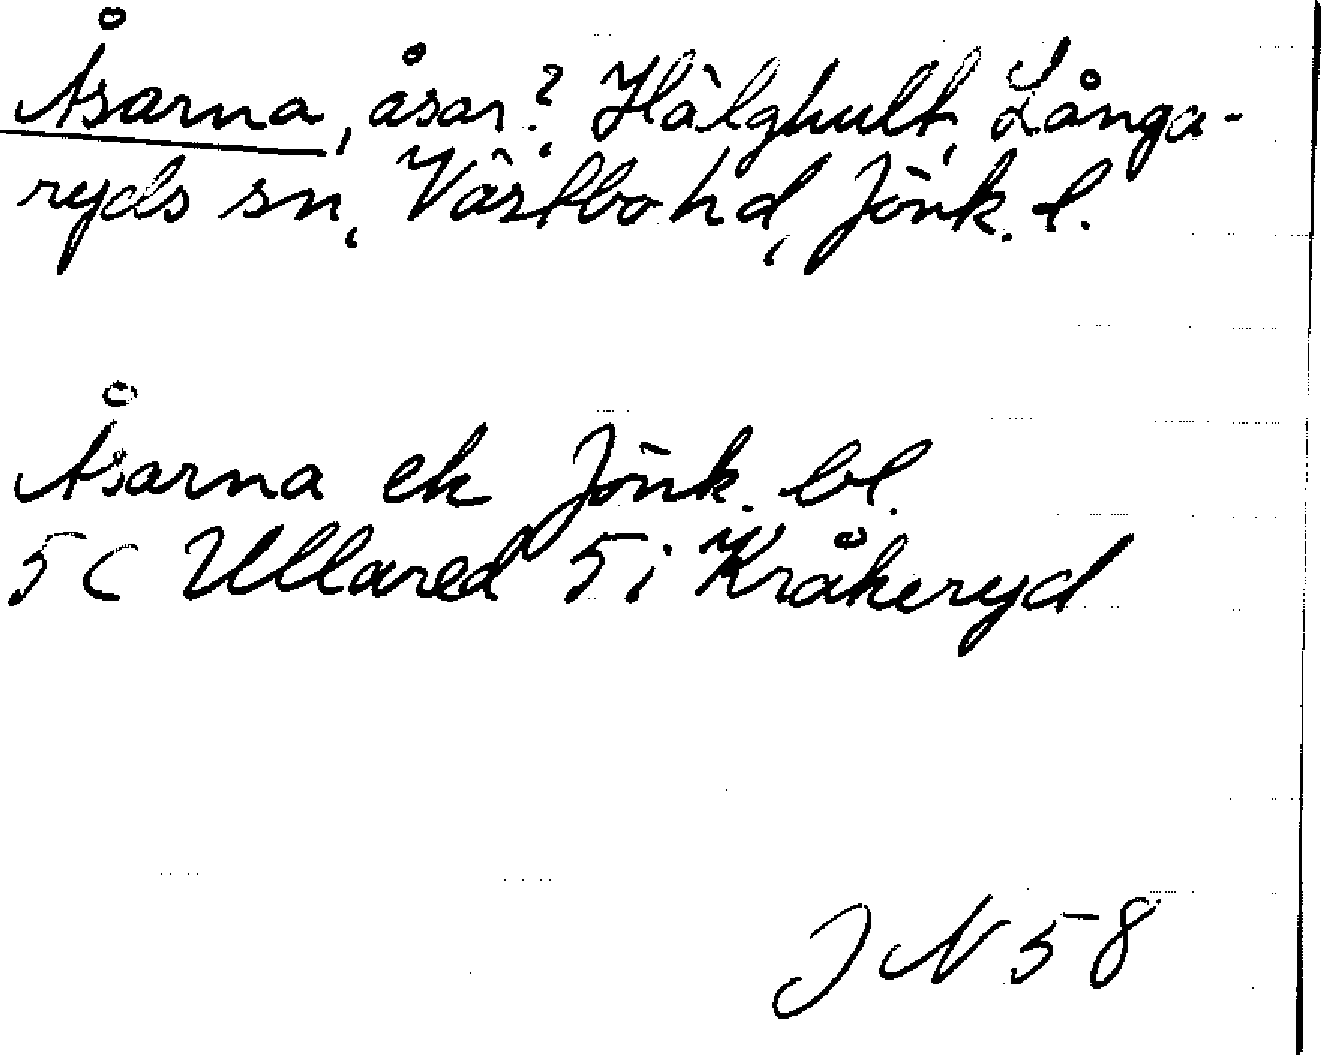 Åsarna, åsar? Hälghult, Långa-
ryds sn, Västbo hd, Jönk. l.
Åsarna ek Jönk. bl.
5 C Ullared 5 i Kråkeryd
J N 58